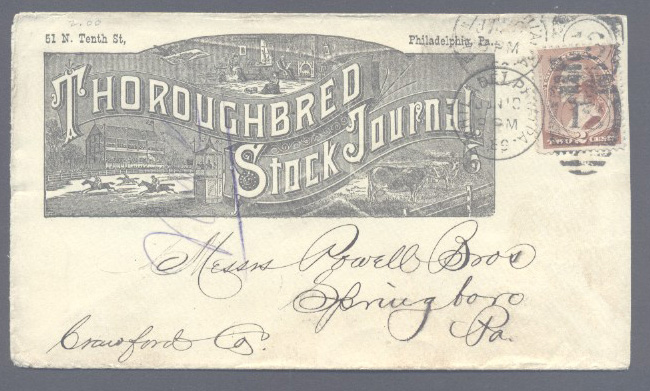 2.00
51 N. Tenth St,
Philadelphia, Pa.
THOROUGHBRED
STOCK JOURNAL
PHILADELPHIA PA.
PM
TWO 2 CENTS
Messrs Powell Bros
Springboro
Crawford Co. Pa.